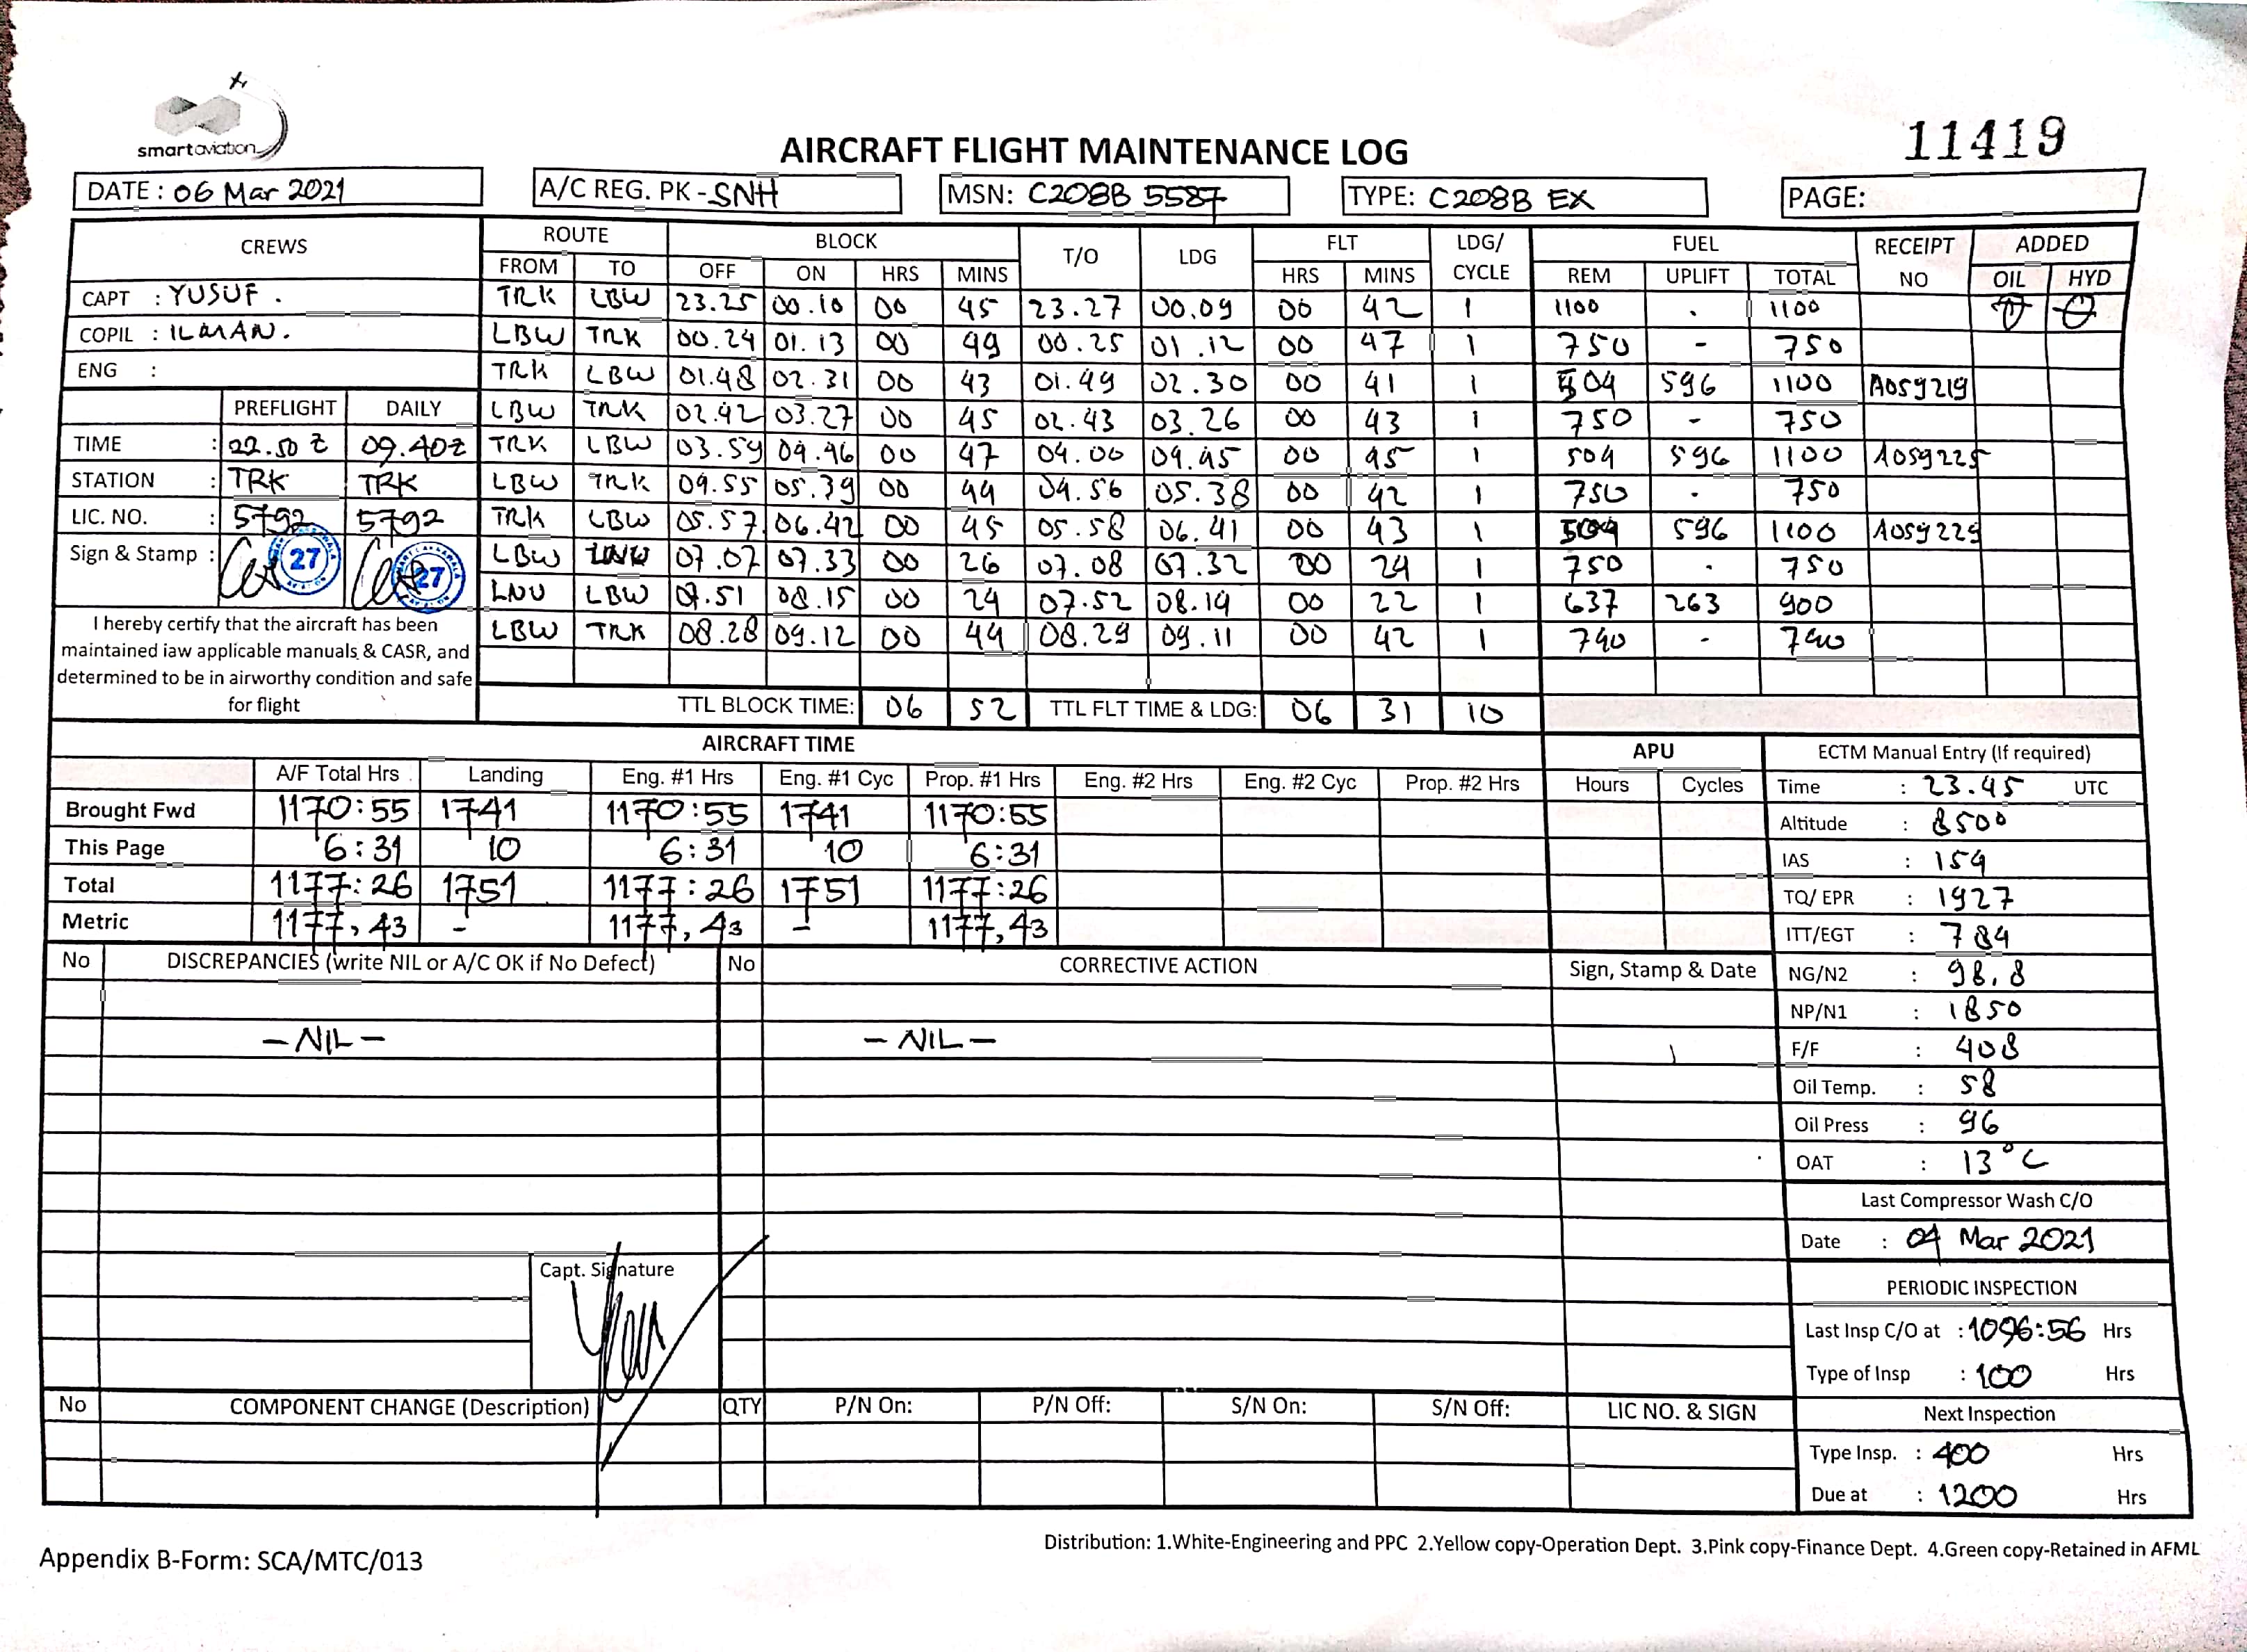 smartaviation
AIRCRAFT FLIGHT MAINTENANCE LOG
11419
DATE : 06 Mar 2021
A/C REG. PK - SNH
MSN: C208B 5587
TYPE: C208B EX
PAGE:
CREWS ROUTE BLOCK T/O LDG FLT LDG/ CYCLE FUEL RECEIPT NO ADDED
FROM TO OFF ON HRS MINS HRS MINS REM UPLIFT TOTAL OIL HYD
CAPT : YUSUF .
COPIL : ILMAN .
ENG :
TRK LBW 23.25 00.10 00 45 23.27 00.09 00 42 1 1100 . 1100
LBW TRK 00.24 01.13 00 49 00.25 01.12 00 47 1 750 - 750
TRK LBW 01.48 02.31 00 43 01.49 02.30 00 41 1 504 596 1100 A059219
LBW TRK 02.42 03.27 00 45 02.43 03.26 00 43 1 750 - 750
TRK LBW 03.59 04.46 00 47 04.00 04.45 00 45 1 504 596 1100 A059225
LBW TRK 04.55 05.39 00 44 04.56 05.38 00 42 1 750 . 750
TRK LBW 05.57 06.42 00 45 05.58 06.41 00 43 1 504 596 1100 A059229
LBW LNU 07.07 07.33 00 26 07.08 07.32 00 24 1 750 . 750
LNU LBW 07.51 08.15 00 24 07.52 08.14 00 22 1 637 263 900
LBW TRK 08.28 09.12 00 44 08.29 09.11 00 42 1 740 - 740
PREFLIGHT DAILY
TIME : 22.50 Z 09.40Z
STATION : TRK TRK
LIC. NO. : 5792 5792
Sign & Stamp : 27 27
I hereby certify that the aircraft has been
maintained iaw applicable manuals & CASR, and
determined to be in airworthy condition and safe
for flight
TTL BLOCK TIME: 06 52 TTL FLT TIME & LDG: 06 31 10
AIRCRAFT TIME
A/F Total Hrs Landing Eng. #1 Hrs Eng. #1 Cyc Prop. #1 Hrs Eng. #2 Hrs Eng. #2 Cyc Prop. #2 Hrs
Brought Fwd 1170:55 1741 1170:55 1741 1170:55
This Page 6:31 10 6:31 10 6:31
Total 1177:26 1751 1177:26 1751 1177:26
Metric 1177,43 - 1177,43 - 1177,43
APU
Hours Cycles
ECTM Manual Entry (If required)
Time : 23.45 UTC
Altitude : 8500
IAS : 154
TQ/ EPR : 1927
ITT/EGT : 784
NG/N2 : 98.8
NP/N1 : 1850
F/F : 408
Oil Temp. : 58
Oil Press : 96
OAT : 13°C
Last Compressor Wash C/O
Date : 04 Mar 2021
PERIODIC INSPECTION
Last Insp C/O at : 1096:56 Hrs
Type of Insp : 100 Hrs
Next Inspection
Type Insp. : 400 Hrs
Due at : 1200 Hrs
No DISCREPANCIES (write NIL or A/C OK if No Defect) No CORRECTIVE ACTION Sign, Stamp & Date
- NIL - - NIL -
Capt. Signature
No COMPONENT CHANGE (Description) QTY P/N On: P/N Off: S/N On: S/N Off: LIC NO. & SIGN
Distribution: 1.White-Engineering and PPC 2.Yellow copy-Operation Dept. 3.Pink copy-Finance Dept. 4.Green copy-Retained in AFML
Appendix B-Form: SCA/MTC/013